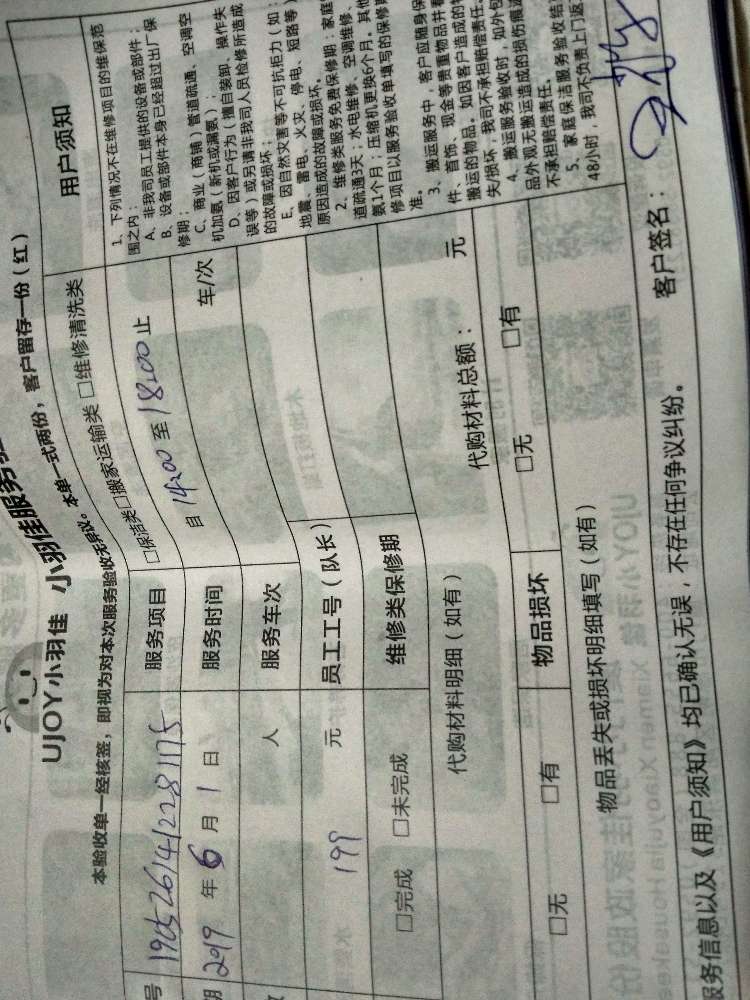 UJOY小羽佳 小羽佳服务验
本验收单一经核签，即视为对本次服务验收无异议。本单一式两份，客户留存一份（红）
号 1905261412281175 服务项目 □保洁类□搬家运输类 □维修清洗类
期 2019 年 6 月 1 日 服务时间 自 14:00 至 18:00 止
人 服务车次 车/次
199 元 员工工号（队长）
□完成 □未完成 维修类保修期
代购材料明细（如有） 代购材料总额： 元
□无 □有 物品损坏 □无 □有
物品丢失或损坏明细填写（如有）
服务信息以及《用户须知》均已确认无误，不存在任何争议纠纷。 客户签名：
用户须知
1、下列情况不在维修项目的维保范
围之内：
A、非我司员工提供的设备或部件；
B、设备或部件本身已经超过出厂保
修期；
C、商业（商铺）管道疏通、空调空
机加氨（新机或漏氨）；
D、因客户行为（擅自装卸、操作失
误等）或另请非我司人员检修所造成
的故障或损坏；
E、因自然灾害等不可抗拒力（如：
地震、雷电、火灾、停电、短路等）
原因造成的故障或损坏。
2、维修类服务免费保修期：家庭
道疏通3天；水电维修、空调维修、
氨1个月；压缩机更换6个月。其他
修项目以服务验收单填写的保修期
准。
3、搬运服务中，客户应随身保
件、首饰、现金等贵重物品并看
搬运的物品。如因客户造成的物
失/损坏，我司不承担赔偿责任。
4、搬运服务验收时，如外包
品外观无搬运造成的损伤痕迹
不承担赔偿责任。
5、家庭保洁服务验收结
48小时，我司不负责上门返